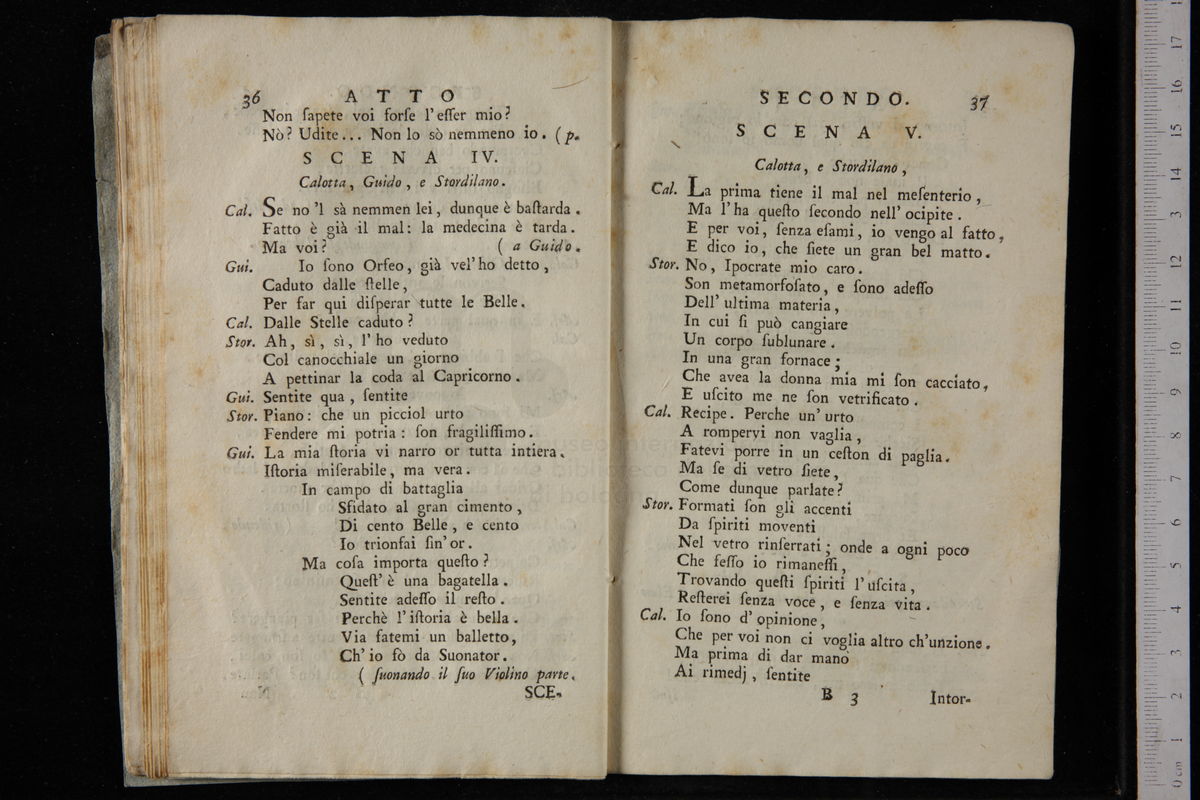 36 ATTO
Non ſapete voi forſe l'eſſer mio?
Nò? Udite... Non lo sò nemmeno io. (p.
SCENA IV.
Calotta, Guido, e Stordilano.
Cal. Se no'l sà nemmen lei, dunque è baſtarda.
Fatto è già il mal: la medecina è tarda.
Ma voi? (a Guido.
Gui. Io ſono Orfeo, già vel'ho detto,
Caduto dalle ſtelle,
Per far qui diſperar tutte le Belle.
Cal. Dalle Stelle caduto?
Stor. Ah, sì, sì, l'ho veduto
Col canocchiale un giorno
A pettinar la coda al Capricorno.
Gui. Sentite qua, ſentite
Stor. Piano: che un picciol urto
Fendere mi potria: ſon fragiliſſimo.
Gui. La mia ſtoria vi narro or tutta intiera.
Iſtoria miſerabile, ma vera.
In campo di battaglia
Sfidato al gran cimento,
Di cento Belle, e cento
Io trionfai ſin'or.
Ma coſa importa queſto?
Queſt'è una bagatella.
Sentite adeſſo il reſto.
Perchè l'iſtoria è bella.
Via fatemi un balletto,
Ch'io fò da Suonator.
(ſuonando il ſuo Violino parte.
SCE-
SECONDO. 37
SCENA V.
Calotta, e Stordilano,
Cal. La prima tiene il mal nel meſenterio,
Ma l'ha queſto ſecondo nell'ocipite.
E per voi, ſenza eſami, io vengo al fatto,
E dico io, che ſiete un gran bel matto.
Stor. No, Ipocrate mio caro.
Son metamorfoſato, e ſono adeſſo
Dell'ultima materia,
In cui ſi può cangiare
Un corpo ſublunare.
In una gran fornace;
Che avea la donna mia mi ſon cacciato,
E uſcito me ne ſon vetrificato.
Cal. Recipe. Perche un'urto
A rompervi non vaglia,
Fatevi porre in un ceſton di paglia.
Ma ſe di vetro ſiete,
Come dunque parlate?
Stor. Formati ſon gli accenti
Da ſpiriti moventi
Nel vetro rinſerrati; onde a ogni poco
Che feſſo io rimaneſſi,
Trovando queſti ſpiriti l'uſcita,
Reſterei ſenza voce, e ſenza vita.
Cal. Io ſono d'opinione,
Che per voi non ci voglia altro ch'unzione.
Ma prima di dar mano
Ai rimedj, ſentite
B 3 Intor-